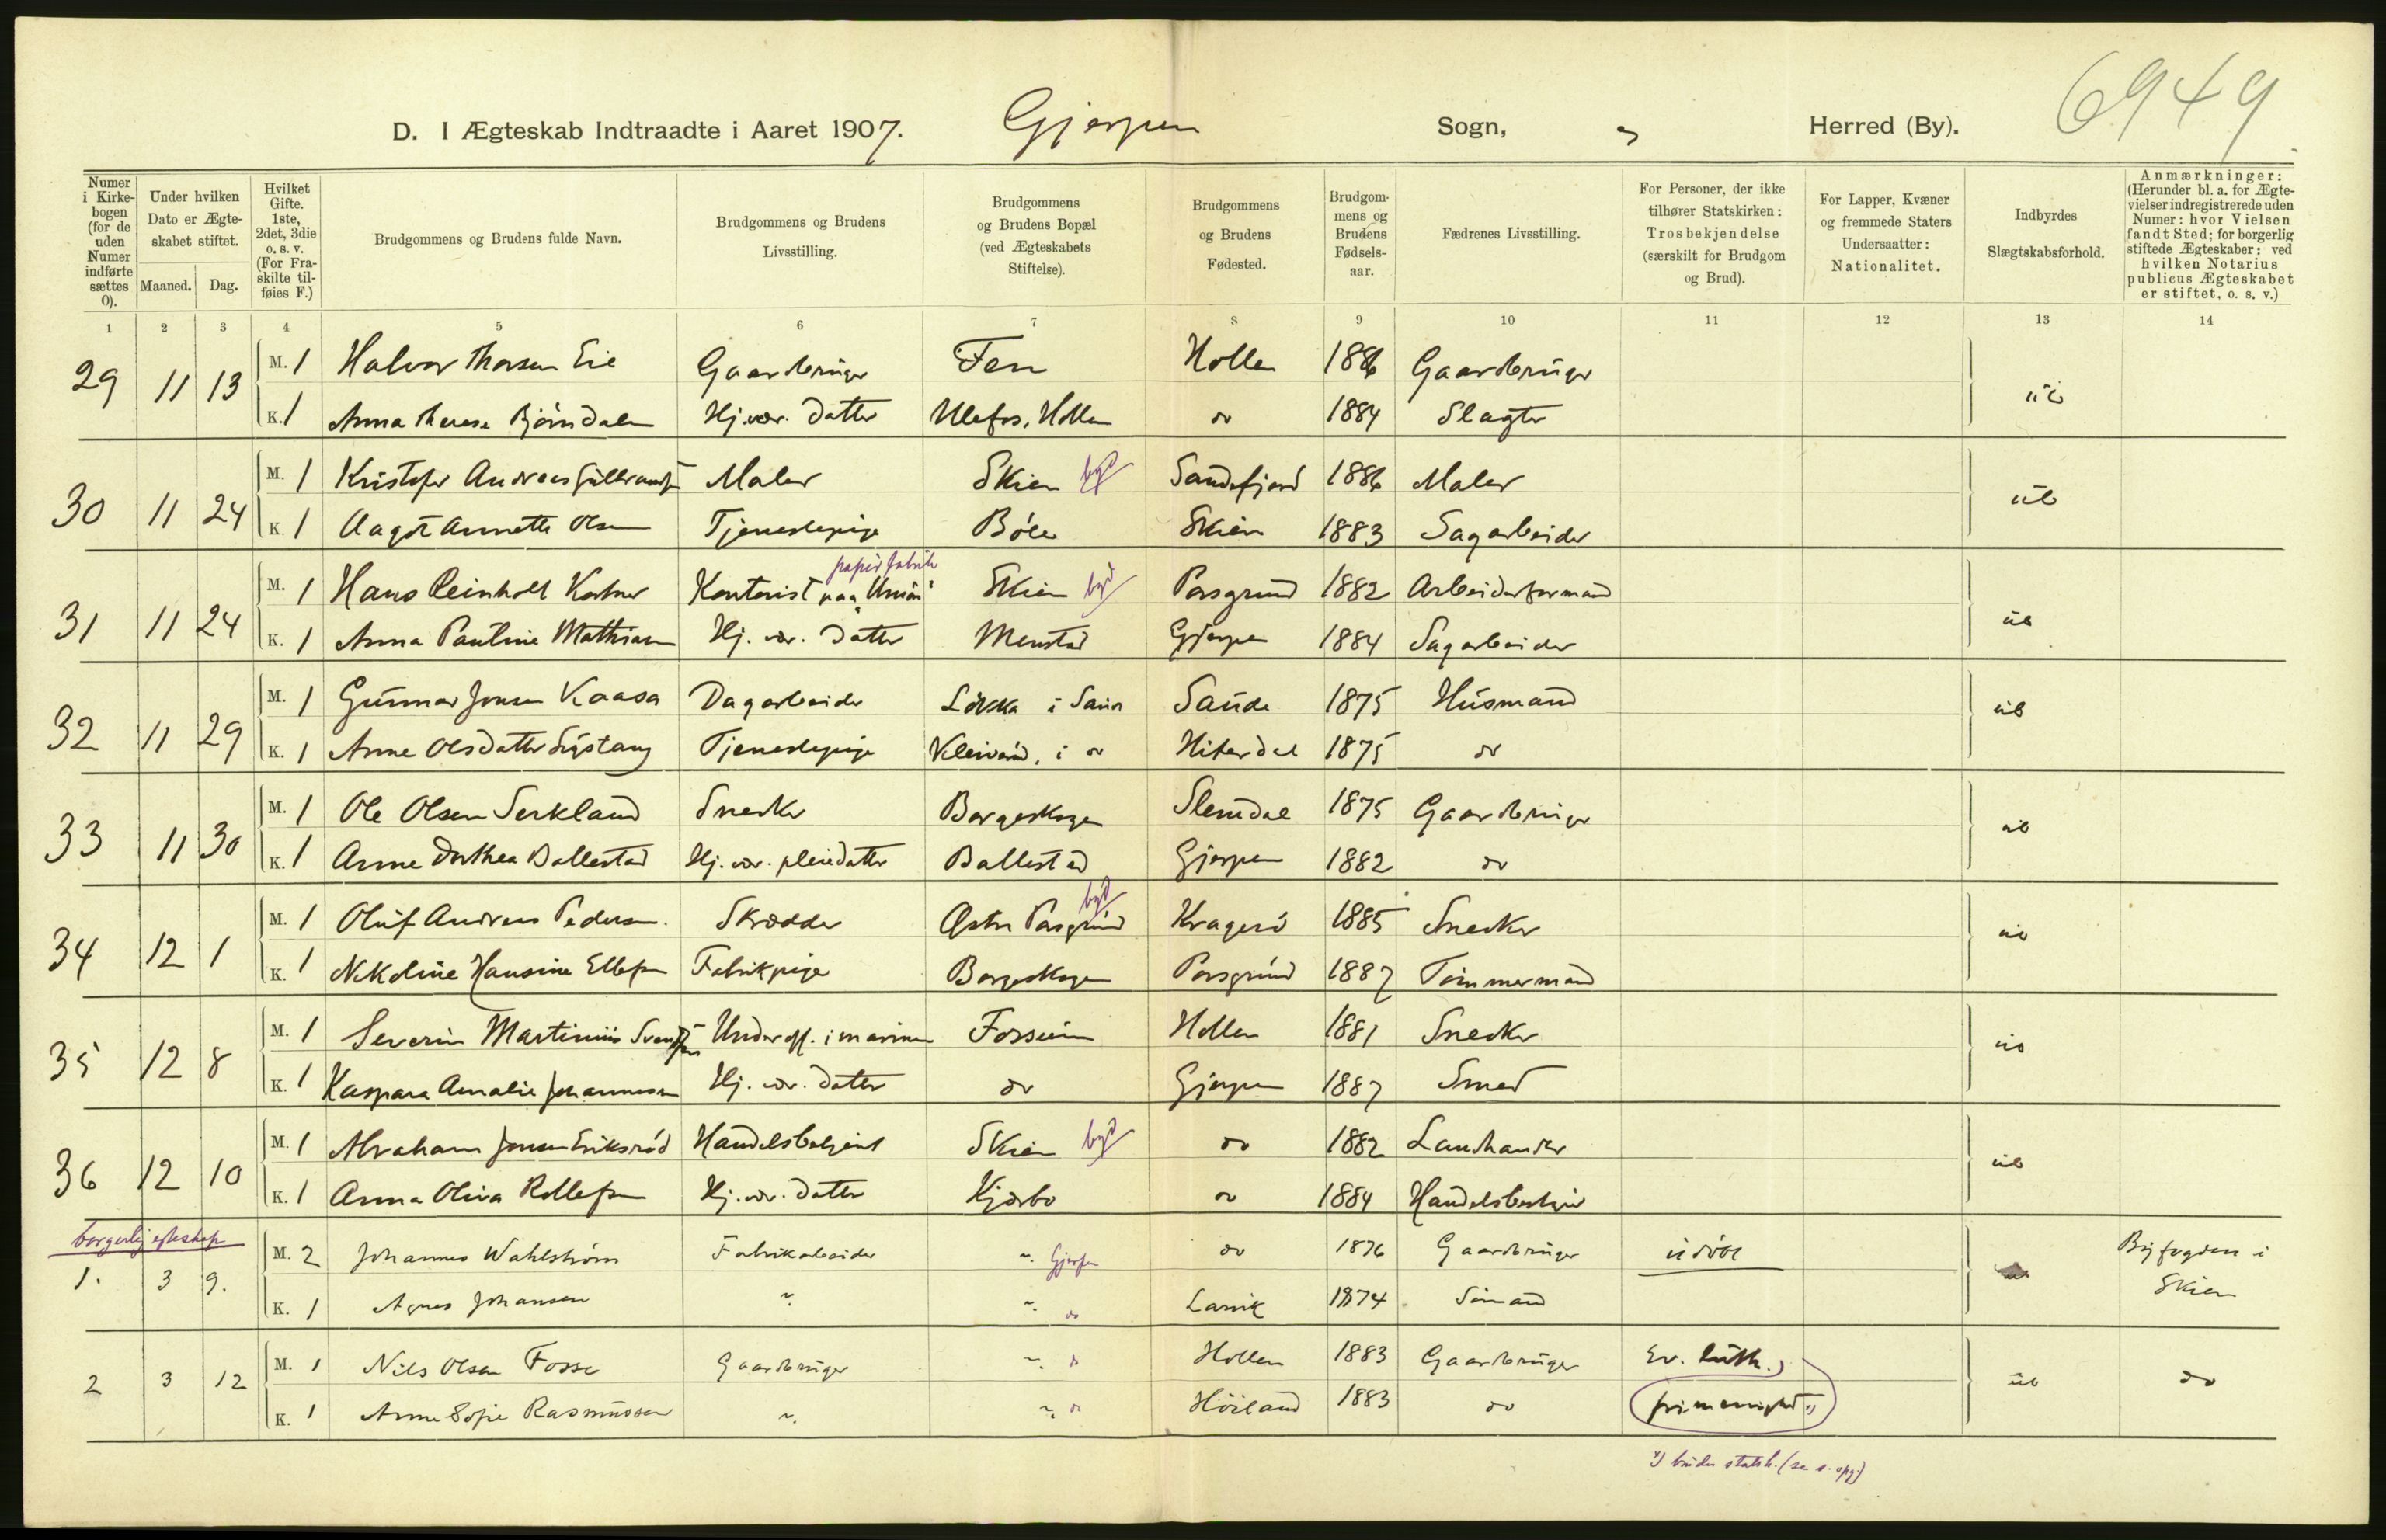 6949
D. I Ægteskab Indtraadte i Aaret 1907. Gjerpen Sogn, Herred (By).
Numer i Kirkebogen (for de uden Numer indførte sættes 0).
Under hvilken Dato er Ægteskabet stiftet.
Maaned. Dag.
Hvilket Gifte. 1ste, 2det, 3die o. s. v. (For Fraskilte tilføies F.)
Brudgommens og Brudens fulde Navn.
Brudgommens og Brudens Livsstilling.
Brudgommens og Brudens Bopæl (ved Ægteskabets Stiftelse).
Brudgommens og Brudens Fødested.
Brudgommens og Brudens Fødselsaar.
Fædrenes Livsstilling.
For Personer, der ikke tilhører Statskirken: Trosbekjendelse (særskilt for Brudgom og Brud).
For Lapper, Kvæner og fremmede Staters Undersaatter: Nationalitet.
Indbyrdes Slægtskabsforhold.
Anmærkninger: (Herunder bl. a. for Ægtevielser indregistrerede uden Numer: hvor Vielsen fandt Sted; for borgerlig stiftede Ægteskaber: ved hvilken Notarius publicus Ægteskabet er stiftet, o. s. v.)
1 2 3 4 5 6 7 8 9 10 11 12 13 14
29 11 13 M. 1 Halvor Thorsen Eie Gaardbruger Fen Hollen 1886 Gaardbruger
K. 1 Anna Therese Bjørndalen Hj.vær. Datter Ulefos, Hollen do 1884 Slagter
ub
30 11 24 M. 1 Kristofer Andreas Maler Skien by Sandefjord 1886 Maler
K. 1 Aagot Annette Olsen Tjenestepige Bøle Skien 1883 Sagarbeider
ub
papirfabrik
31 11 24 M. 1 Hans Reinholt Kontorist paa "Union" Skien by Porsgrund 1882 Arbeiderformand
K. 1 Anna Pauline Mathiasen Hj. vær. Datter Menstad Gjerpen 1884 Sagarbeider
ub
32 11 29 M. 1 Gunnar Jonsen Kaasa Dagarbeider i Saude Saude 1875 Husmand
K. 1 Anne Olsdatter Tjenestepige i do Hiterdal 1875 do
ub
33 11 30 M. 1 Ole Olsen Serkland Snedker Borgeskogen Slemdal 1875 Gaardbruger
K. 1 Anne Dorthea Ballestad Hj. vær. pleiedatter Ballestad Gjerpen 1882 do
ub
by
34 12 1 M. 1 Oluf Andreas Pedersen. Skrædder Østre Porsgrund Kragerø 1885 Snedker
K. 1 Nikoline Hansine Ellefsen Fabrikpige Borgeskogen Porsgrund 1887 Tømmermand
ub
35 12 8 M. 1 Severin Martinius Svendsen Underoff. i marinen Fossum Hollen 1881 Snedker
K. 1 Kaspara Amalie Johannesen Hj. vær. Datter do Gjerpen 1887 Smed
ub
36 12 10 M. 1 Abraham Jensen Eriksrød Handelsbetjent Skien by do 1882 Landhandler
K. 1 Anna Oliva Rollefsen Hj. vær. Datter Kjørbo do 1884 Handelsbestyrer
ub
borgerlig egteskap
1. 3 9. M. 2 Johannes Wahlstrøm Fabrikarbeider ". Gjerpen do 1876 Gaardbruger udøbt Byfogden i
K. 1 Agnes Johansen " " do Larvik 1874 Sømand Skien
2 3 12 M. 1 Nils Olsen Fosse Gaardbruger " do Hollen 1883 Gaardbruger Ev. luth.
K. 1 Anne Sofie Rasmussen " " do Høiland 1883 do frimenighed x)
ub do
x) bruden statsk. (se s. opg)